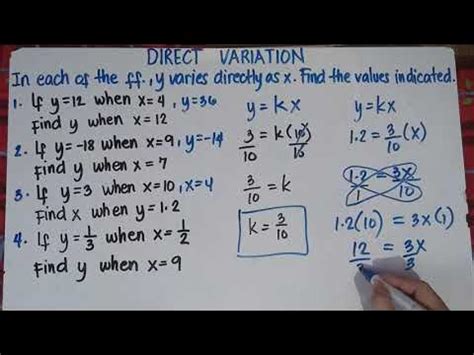 DIRECT VARIATION
In each of the ff., y varies directly as x. Find the values indicated.
1. If y=12 when x=4, y=36
Find y when x=12
2. If y=-18 when x=9, y=-14
Find y when x=7
3. If y=3 when x=10, x=4
Find x when y=1.2
4. If y=1/3 when x=1/2
Find y when x=9
y=kx
3/10 = k(10)/10
3/10 = k
k = 3/10
y=kx
1.2 = 3/10 (x)
1.2/1 = 3x/10
1.2(10) = 3x(1)
12/3 = 3x/3